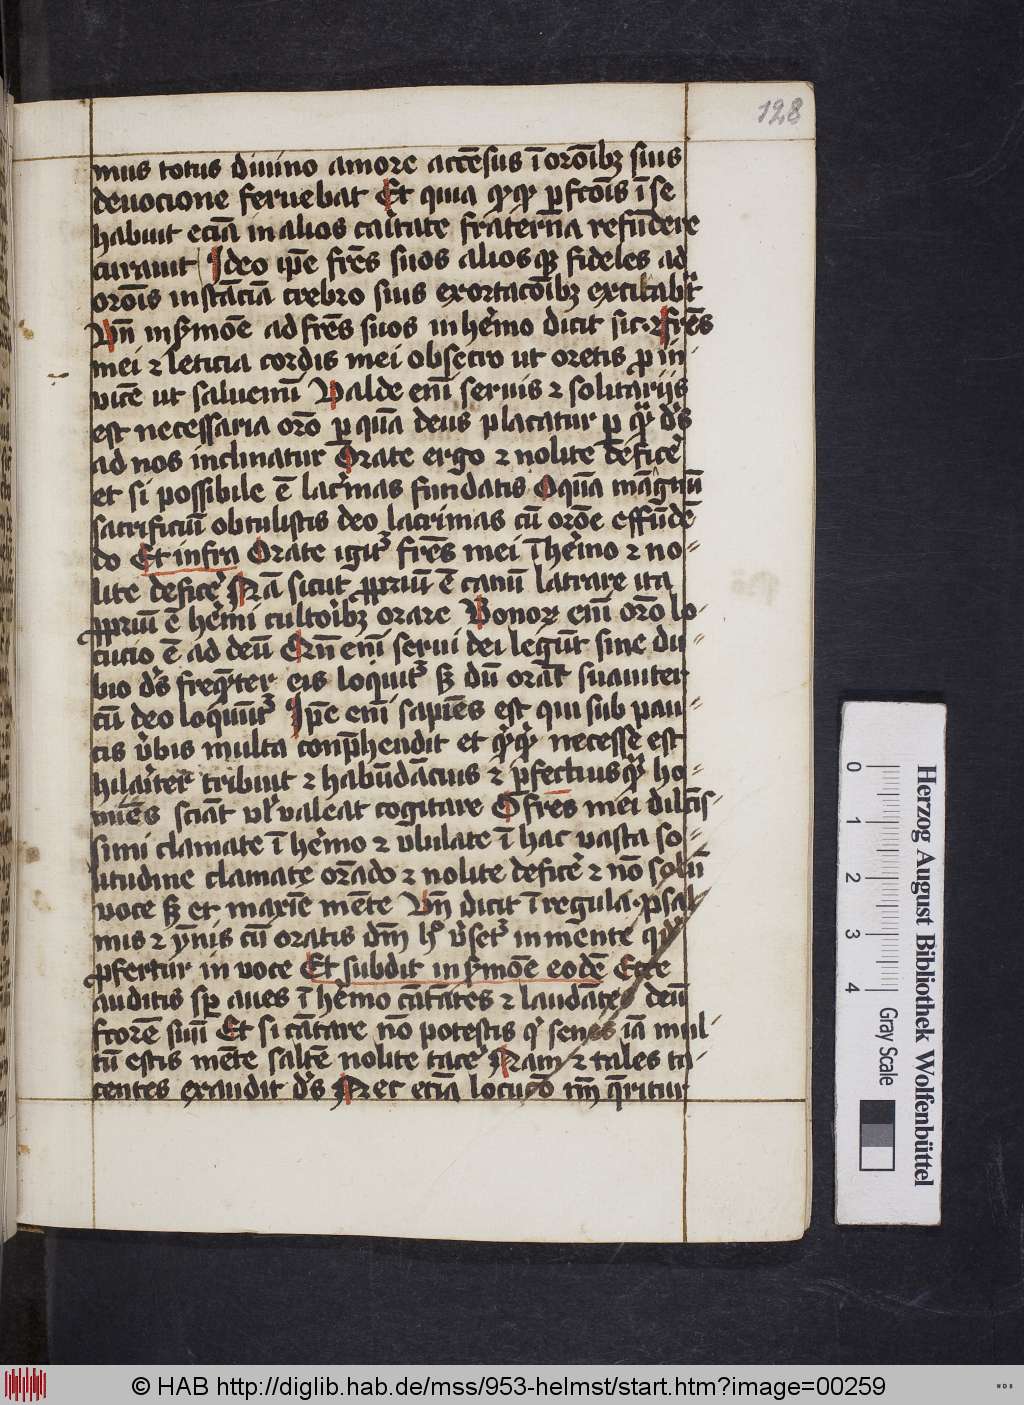 128
mus totus diuino amore accēsus ī orōībꝫ suis
deuocione feruebat Et quia qͥcqͥd pfcōīs ī se
habuit eciā in alios caritate fraterna refūdere
curauit Ideo ip̄e fr̄es suos aliosqꝫ fideles ad
orōīs instāciā crebro suis exortacōībꝫ excitabat
Vn̄ in sͬmōe ad fr̄es suos in hēmo dicit sic. fr̄es
mei ⁊ leticia cordis mei obsecro ut oretis ꝓ in
vicē ut saluemī Valde em̄ seruis ⁊ solitariis
est necessaria orō ꝑ quā deus placatur ꝑ qͣ d̄s
ad nos inclinatur Orate ergo ⁊ nolite deficē
et si possibile ē lacͥmas fundatis O quā magnū
sacrificiū obtulistis deo lacrimas cū orōe effūdē
do Et infra Orate igitͬ fr̄es mei ī hēmo ⁊ no
lite deficē Nā sicut ꝓpriū ē canū latrare ita
ꝓpriū ē hēmi cultoribꝫ orare Bonoꝝ em̄ orō lo
cucio ē ad deū Cū em̄ serui dei legūt sine du
bio d̄s freqūter eis loquitͬ sꝫ dū orāt suauiter
cū deo loquūtͬ Ip̄e em̄ sapiēs est qui sub pau
cis v̄bis multa conp̄hendit et qͥcqͥd necesse est
hilarͥter tribuit ⁊ habūdācius ⁊ ꝑfectius qͣ ho
mīes sciāt vl̄ valeāt cogitare O fr̄es mei dilc̄is
simi clamate ī hēmo ⁊ vlulate ī hac vasta so
litudine clamate orādo ⁊ nolite deficē ⁊ nō solū
voce sꝫ et maxīe mēte Vn̄ dicit ī regula. psal
mis ⁊ ymnis cū oratis dm̄ h̄ v̄setͬ in mente qͩ
ꝓfertur in voce Et subdit in sͬmōe eodē Ecce
auditis sꝑ aues ī hēmo cātātes ⁊ laudātes deū
fc̄orē suū Et si cātare nō potestis qͥ senes iā mul
tū estis mēte saltē nolite tacē Nam ⁊ tales ta
centes exaudit d̄s Nec eciā locucō nr̄a q̄ritur
Herzog August Bibliothek Wolfenbüttel
0 1 2 3 4
Gray Scale
© HAB http://diglib.hab.de/mss/953-helmst/start.htm?image=00259